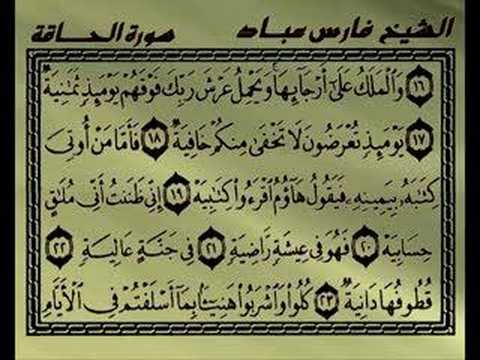 الشيخ فارس عباد سورة الحاقة
١٦ وَالْمَلَكُ عَلَىٰٓ أَرْجَآئِهَا وَيَحْمِلُ عَرْشَ رَبِّكَ فَوْقَهُمْ يَوْمَئِذٍ ثَمَٰنِيَةٌ
١٧ يَوْمَئِذٍ تُعْرَضُونَ لَا تَخْفَىٰ مِنكُمْ خَافِيَةٌ ١٨ فَأَمَّا مَنْ أُوتِىَ
كِتَٰبَهُۥ بِيَمِينِهِۦ فَيَقُولُ هَآؤُمُ اقْرَءُوا۟ كِتَٰبِيَهْ ١٩ إِنِّى ظَنَنتُ أَنِّى مُلَٰقٍ
حِسَابِيَهْ ٢٠ فَهُوَ فِى عِيشَةٍ رَّاضِيَةٍ ٢١ فِى جَنَّةٍ عَالِيَةٍ ٢٢
قُطُوفُهَا دَانِيَةٌ ٢٣ كُلُوا۟ وَاشْرَبُوا۟ هَنِيٓـًٔۢا بِمَآ أَسْلَفْتُمْ فِى الْأَيَّامِ